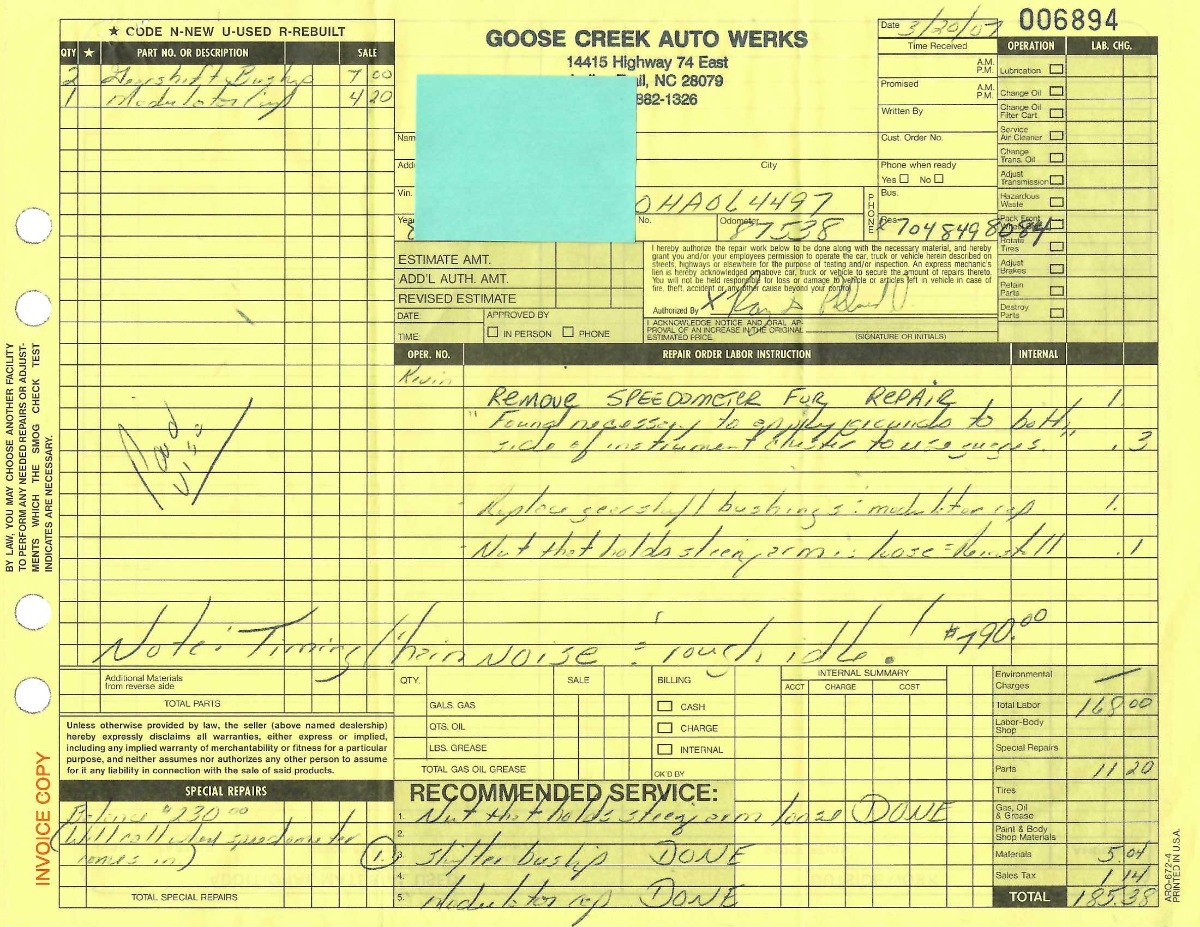 ★ CODE N-NEW U-USED R-REBUILT
QTY ★ PART NO. OR DESCRIPTION SALE
2 Gearshift Bushp 7 00
1 Modulator Cap 4 20
GOOSE CREEK AUTO WERKS
14415 Highway 74 East
Trail, NC 28079
882-1326
Date 3/20/07
006894
Time Received
A.M.
P.M.
Promised
A.M.
P.M.
Written By
Cust. Order No.
Phone when ready
Yes No
OPERATION LAB. CHG.
Lubrication
Change Oil
Change Oil
Filter Cart.
Service
Air Cleaner
Change
Trans. Oil
Adjust
Transmission
Hazardous
Waste
Pack Front
Rotate
Tires
Adjust
Brakes
Retain
Parts
Destroy
Parts
Name
City
Vin.
0HA0L4497
No. Odometer 87538
PHONE
Bus.
Res. 704 849 8084
ESTIMATE AMT.
ADD'L AUTH. AMT.
REVISED ESTIMATE
DATE: APPROVED BY
TIME: IN PERSON PHONE
I hereby authorize the repair work below to be done along with the necessary material, and hereby
grant you and/or your employees permission to operate the car, truck or vehicle herein described on
streets, highways or elsewhere for the purpose of testing and/or inspection. An express mechanic's
lien is hereby acknowledged on above car, truck or vehicle to secure the amount of repairs thereto.
You will not be held responsible for loss or damage to vehicle or articles left in vehicle in case of
fire, theft, accident or any other cause beyond your control.
Authorized By X
I ACKNOWLEDGE NOTICE AND ORAL AP-
PROVAL OF AN INCREASE IN THE ORIGINAL
ESTIMATED PRICE.
(SIGNATURE OR INITIALS)
OPER. NO. REPAIR ORDER LABOR INSTRUCTION INTERNAL
Kevin
REMOVE SPEEDOMETER FUR REPAIR 1.
" Found necessary to apply grounds to both
side of instrument cluster to use guages. " .3
- Replace gearshift bushings : modulator cap 1.
- Nut that holds steering arm : loose = Reinstall .1
Paid
Visa
Note: Timing Chain NOISE = rough idle! $790.00
BY LAW, YOU MAY CHOOSE ANOTHER FACILITY
TO PERFORM ANY NEEDED REPAIRS OR ADJUST-
MENTS WHICH THE SMOG CHECK TEST
INDICATES ARE NECESSARY.
Additional Materials
from reverse side
TOTAL PARTS
Unless otherwise provided by law, the seller (above named dealership)
hereby expressly disclaims all warranties, either express or implied,
including any implied warranty of merchantability or fitness for a particular
purpose, and neither assumes nor authorizes any other person to assume
for it any liability in connection with the sale of said products.
SPECIAL REPAIRS
Balance $230.00
(Will call when speedometer
comes in)
TOTAL SPECIAL REPAIRS
INVOICE COPY
QTY. SALE
GALS. GAS
QTS. OIL
LBS. GREASE
TOTAL GAS OIL GREASE
BILLING
CASH
CHARGE
INTERNAL
OK'D BY
INTERNAL SUMMARY
ACCT CHARGE COST
RECOMMENDED SERVICE:
1. Nut that holds steering arm loose DONE
2.
1. 3. Shifter bushp DONE
4.
5. Modulator cap DONE
Environmental
Charges —
Total Labor 168.00
Labor-Body
Shop
Special Repairs
Parts 11 20
Tires
Gas, Oil
& Grease
Paint & Body
Shop Materials
Materials 5.04
Sales Tax 1 14
TOTAL 185.38
ARO-672-4
PRINTED IN U.S.A.